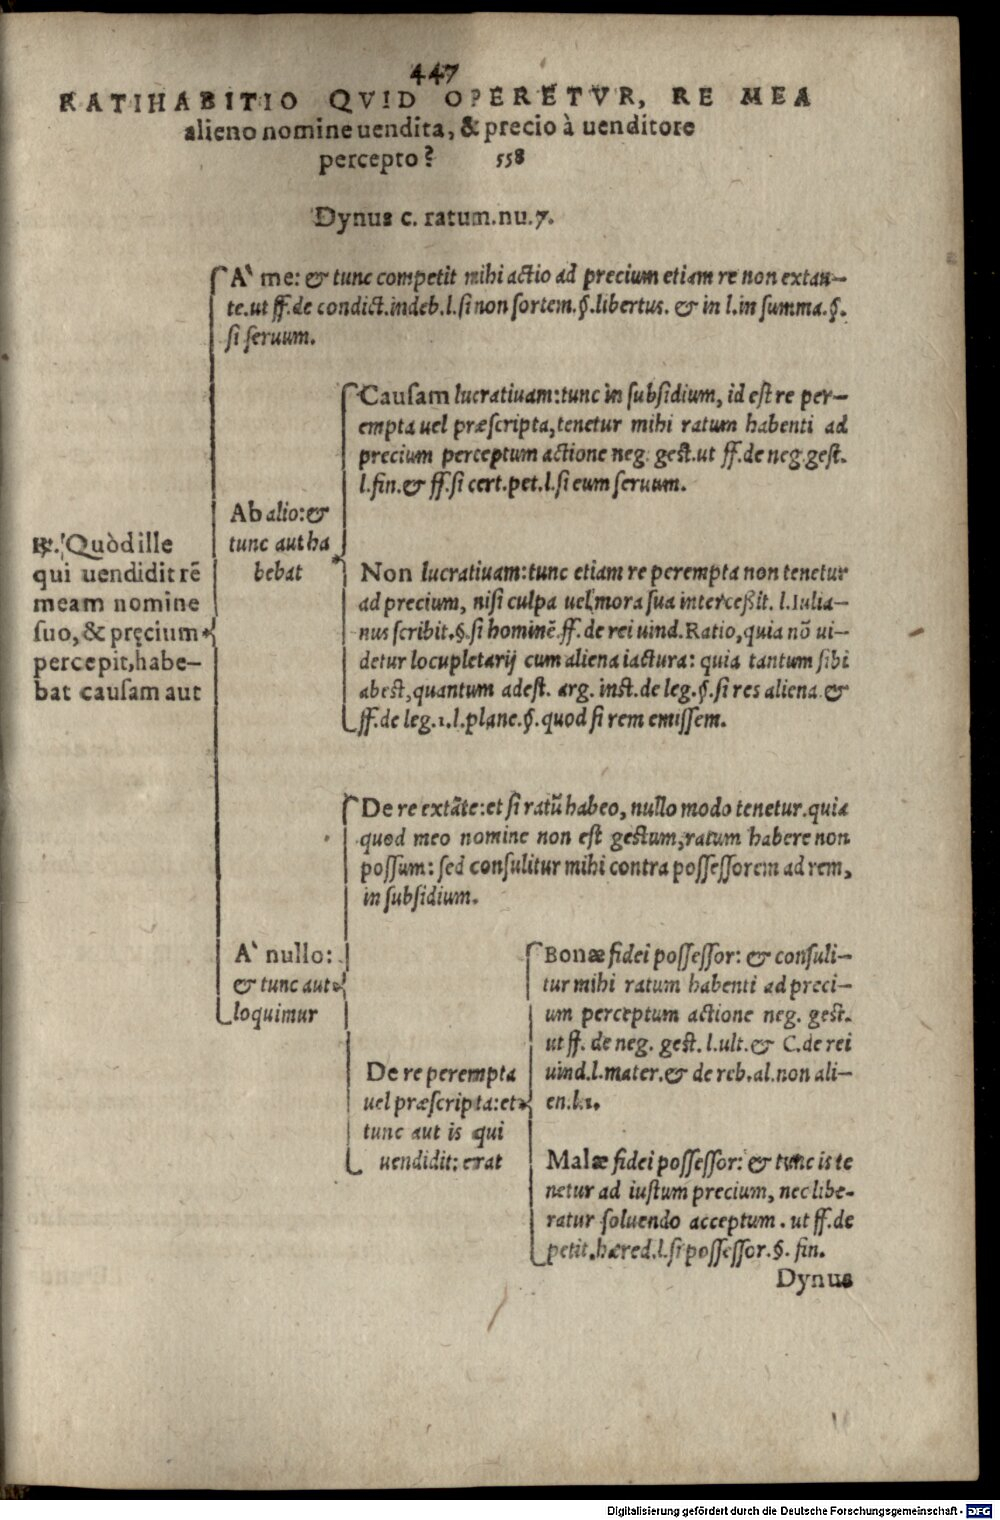 447
RATIHABITIO QVID OPERETVR, RE MEA
alieno nomine uendita, & precio à uenditore
percepto? 558
Dynus c. ratum.nu.7.
A' me: & tunc competit mihi actio ad precium etiam re non extan-
te.ut ff.de condict.indeb.l.si non sortem.§.libertus. & in l.in summa.§.
si seruum.
Causam lucratiuam:tunc in subsidium, id est re per-
empta uel præscripta,tenetur mihi ratum habenti ad
precium perceptum actione neg. gest.ut ff.de neg.gest.
l.fin.& ff.si cert.pet.l.si eum seruum.
Ab alio:&
tunc aut ha
bebat
Non lucratiuam:tunc etiam re perempta non tenetur
ad precium, nisi culpa uel mora sua interceßit. l.Iulia-
nus scribit.§.si hominē.ff.de rei uind.Ratio,quia nō ui-
detur locupletarij cum aliena iactura: quia tantum sibi
abest,quantum adest. arg. inst.de leg.§.si res aliena.&
ff.de leg.1.l.plane.§.quod si rem emissem.
℞. Quòd ille
qui uendidit rē
meam nomine
suo, & pręcium
percepit,habe-
bat causam aut
De re extāte:et si ratū habeo, nullo modo tenetur.quia
quod meo nomine non est gestum,ratum habere non
possum: sed consulitur mihi contra possessorem ad rem,
in subsidium.
A' nullo:
& tunc aut
loquimur
De re perempta
uel præscripta:et
tunc aut is qui
uendidit: erat
Bonæ fidei possessor: & consuli-
tur mihi ratum habenti ad preci-
um perceptum actione neg. gest.
ut ff. de neg. gest. l.ult.& C.de rei
uind.l.mater.& de reb.al.non ali-
en.l.1.
Malæ fidei possessor: & tunc is te
netur ad iustum precium, nec libe-
ratur soluendo acceptum. ut ff.de
petit.hæred.l.si possessor.§. fin.
Dynus
Digitalisierung gefördert durch die Deutsche Forschungsgemeinschaft - DFG